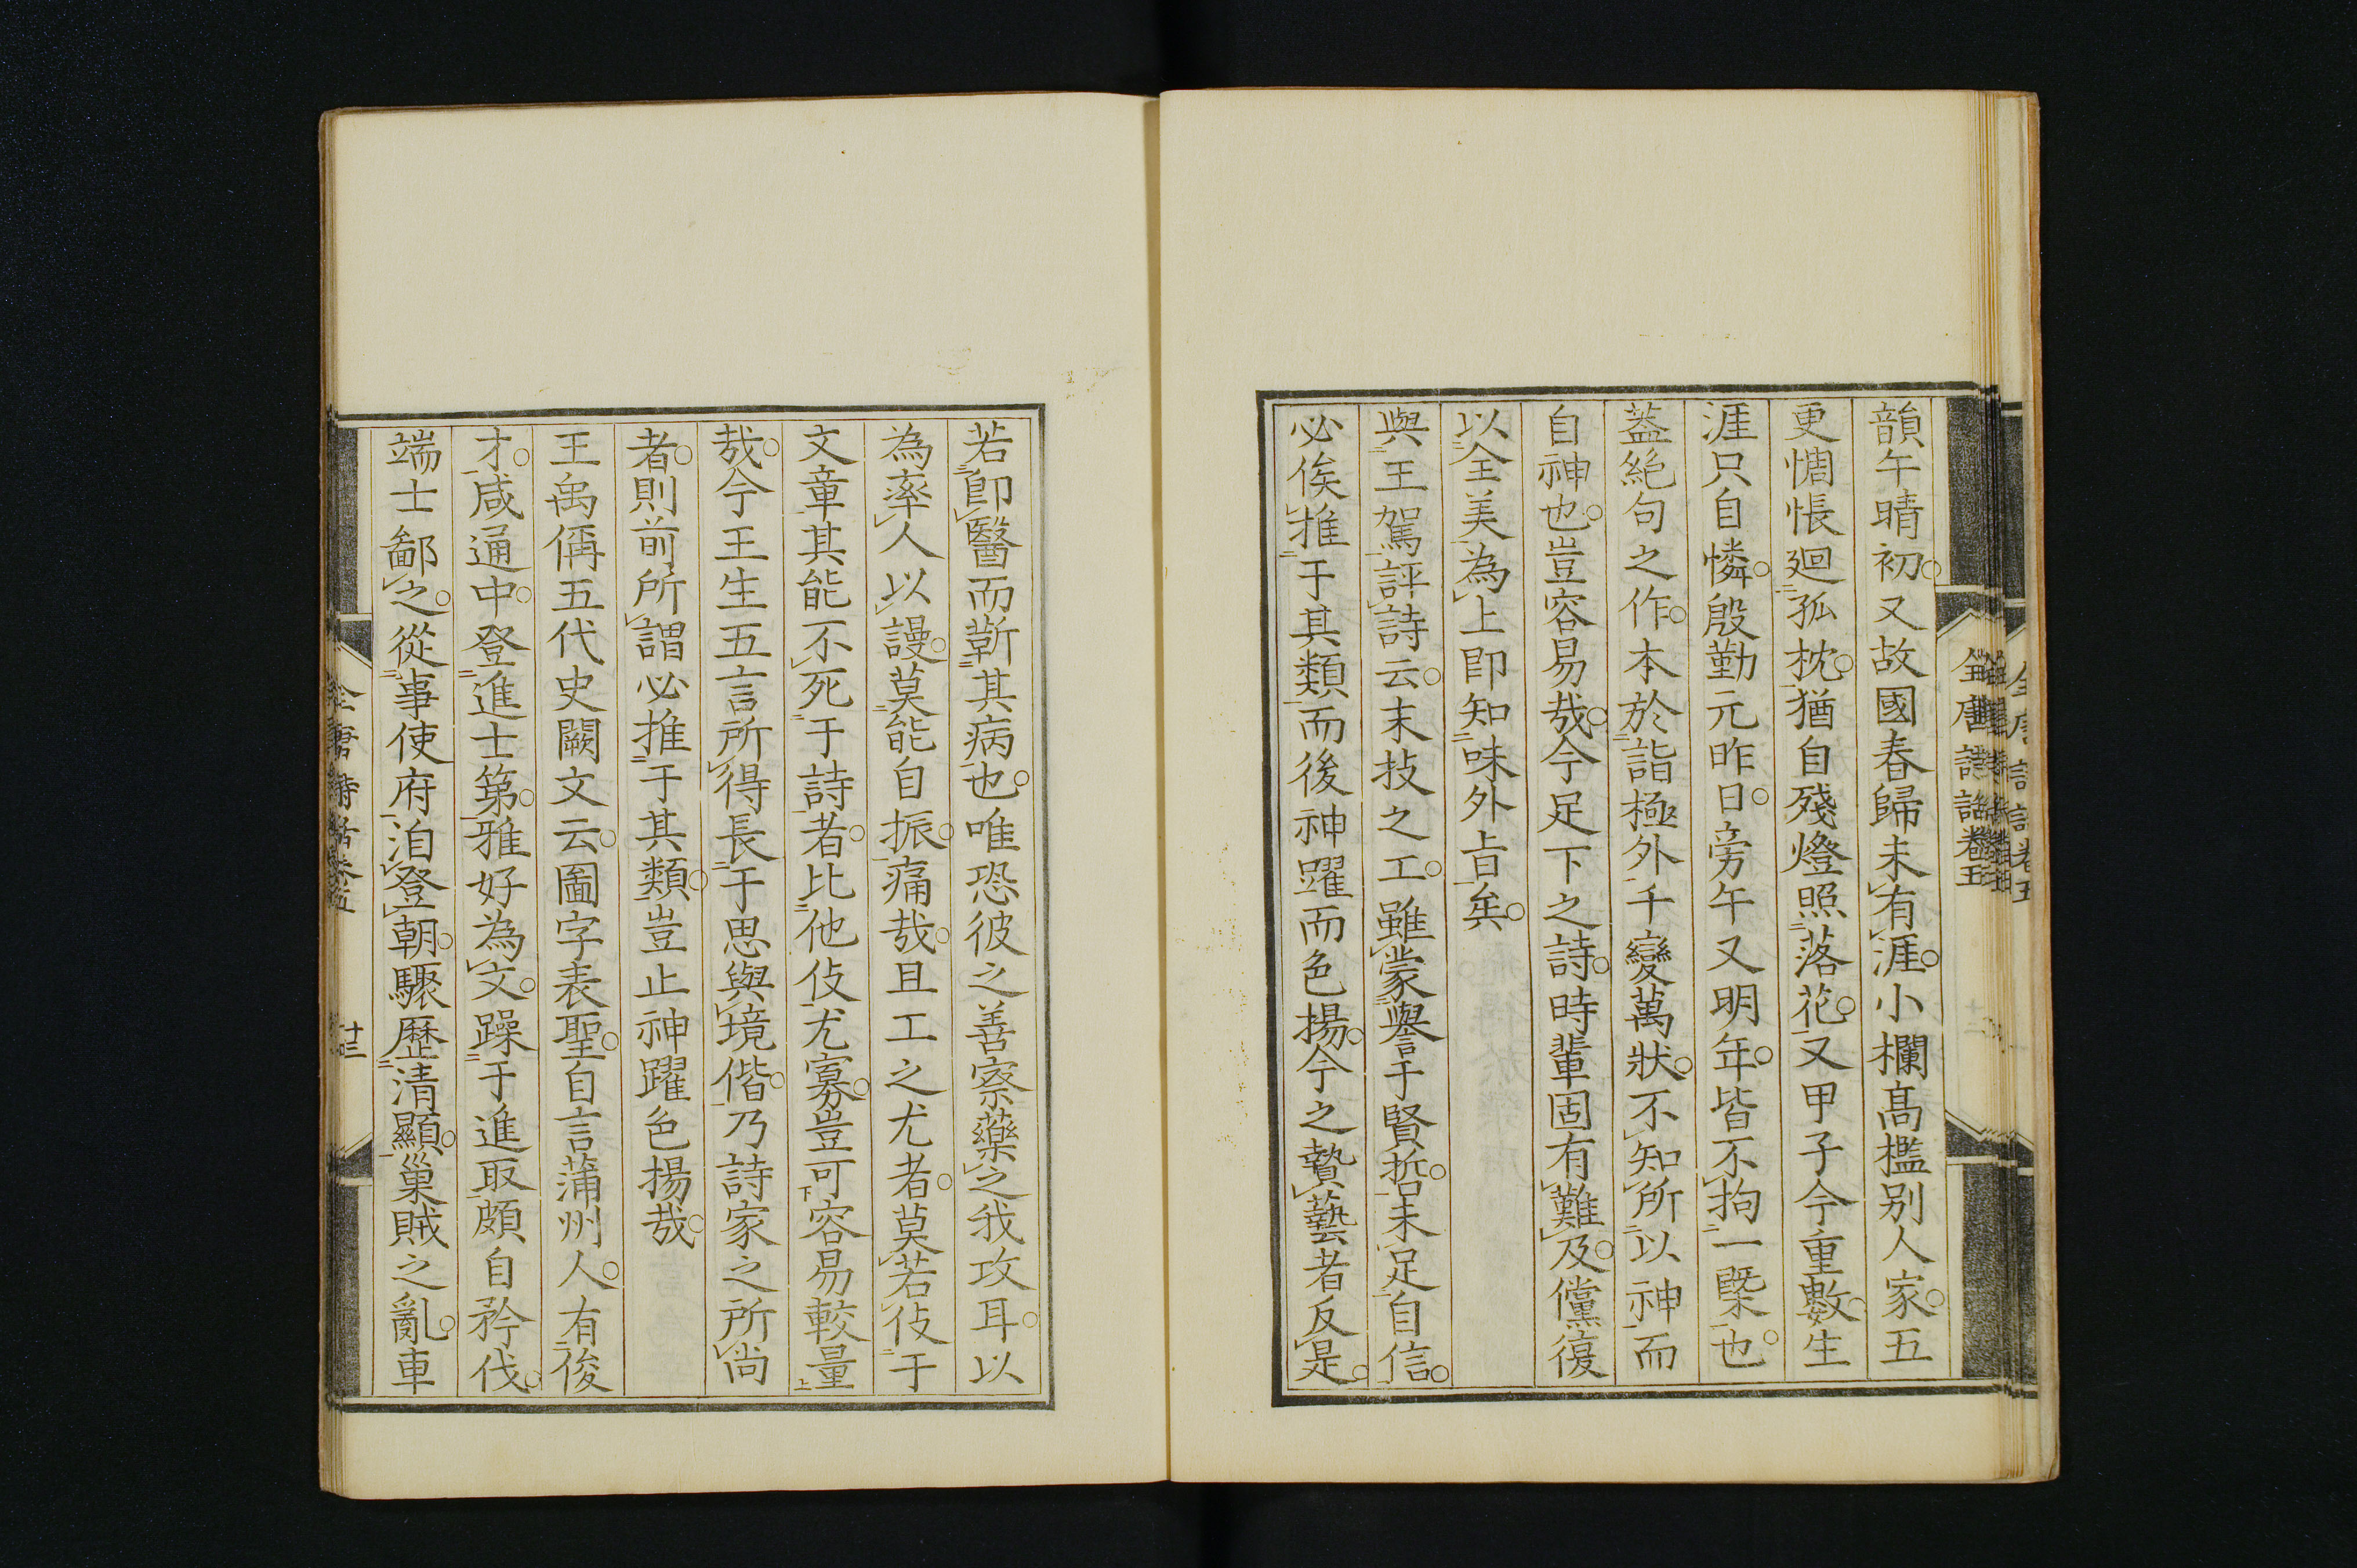 韻午晴初又故國春歸未有涯小欄髙檻别人家五
更惆悵廻孤枕猶自殘燈照落花又甲子今重數生
涯只自憐殷勤元昨日旁午又明年皆不拘一槩也
葢絶句之作本於詣極外千變萬狀不知所以神而
自神也豈容易哉今足下之詩時輩固有難及儻復
以全美為上即知味外㫖矣
與王駕評詩云末技之工雖蒙譽于賢哲未足自信
必俟推于其類而後神躍而色揚今之贄藝者反是
若即醫而蘄其病也唯恐彼之善察藥之我攻耳以
為率人以謾莫能自振痛哉且工之尤者莫若伎于
文章其能不死于詩者比他伎尤寡豈可容易較量
哉今王生五言所得長于思與境偕乃詩家之所尚
者則前所謂必推于其類豈止神躍色揚哉
王禹偁五代史闕文云圖字表聖自言蒲州人有俊
才咸通中登進士第雅好為文躁于進取頗自矜伐
端士鄙之從事使府洎登朝驟歴清顯巢賊之亂車
全唐詩話卷五
十三